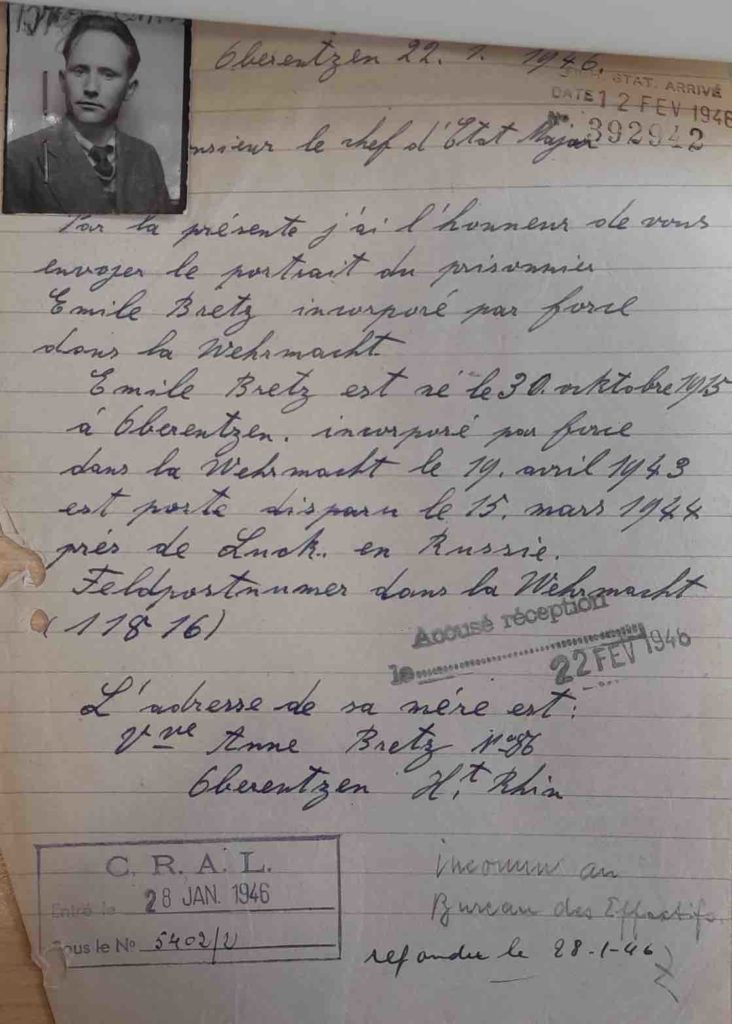 Oberentzen 22. 1. 1946.
STAT. ARRIVÉ
DATE 12 FEV 1946
No. 392942
nsieur le chef d'Etat Major
Par la présente j'ai l'honneur de vous
envoyer le portrait du prisonnier
Emile Bretz incorporé par force
dans la Wehrmacht
Emile Bretz est né le 30. oktobre 1925
à Oberentzen. incorporé par force
dans la Wehrmacht le 19. avril 1943
est porté disparu le 15. mars 1944
prés de Luck. en Russie.
Feldpostnumer dans la Wehrmacht
(118 16)
Accusé réception
le 22 FEV 1946
L'adresse de sa mére est:
Vve Anne Bretz No 86
Oberentzen Ht. Rhin
C. R. A. L.
Entré le 28 JAN. 1946
Sous le No 5402/U
inconnu au
Bureau des Effectifs
répondu le 28-1-46